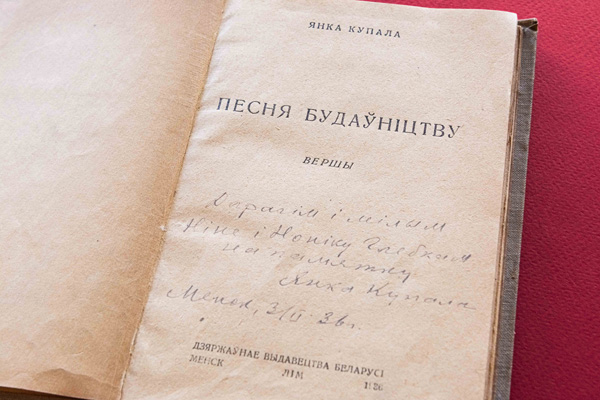 ЯНКА КУПАЛА
ПЕСНЯ БУДАЎНІЦТВУ
ВЕРШЫ
Дарагім і мілым
Ніне і Ноніку Глебкам
на памятку
Янка Купала
Менск, 3/II 36 г.
ДЗЯРЖАЎНАЕ ВЫДАВЕЦТВА БЕЛАРУСІ
МЕНСК ЛІМ 1936